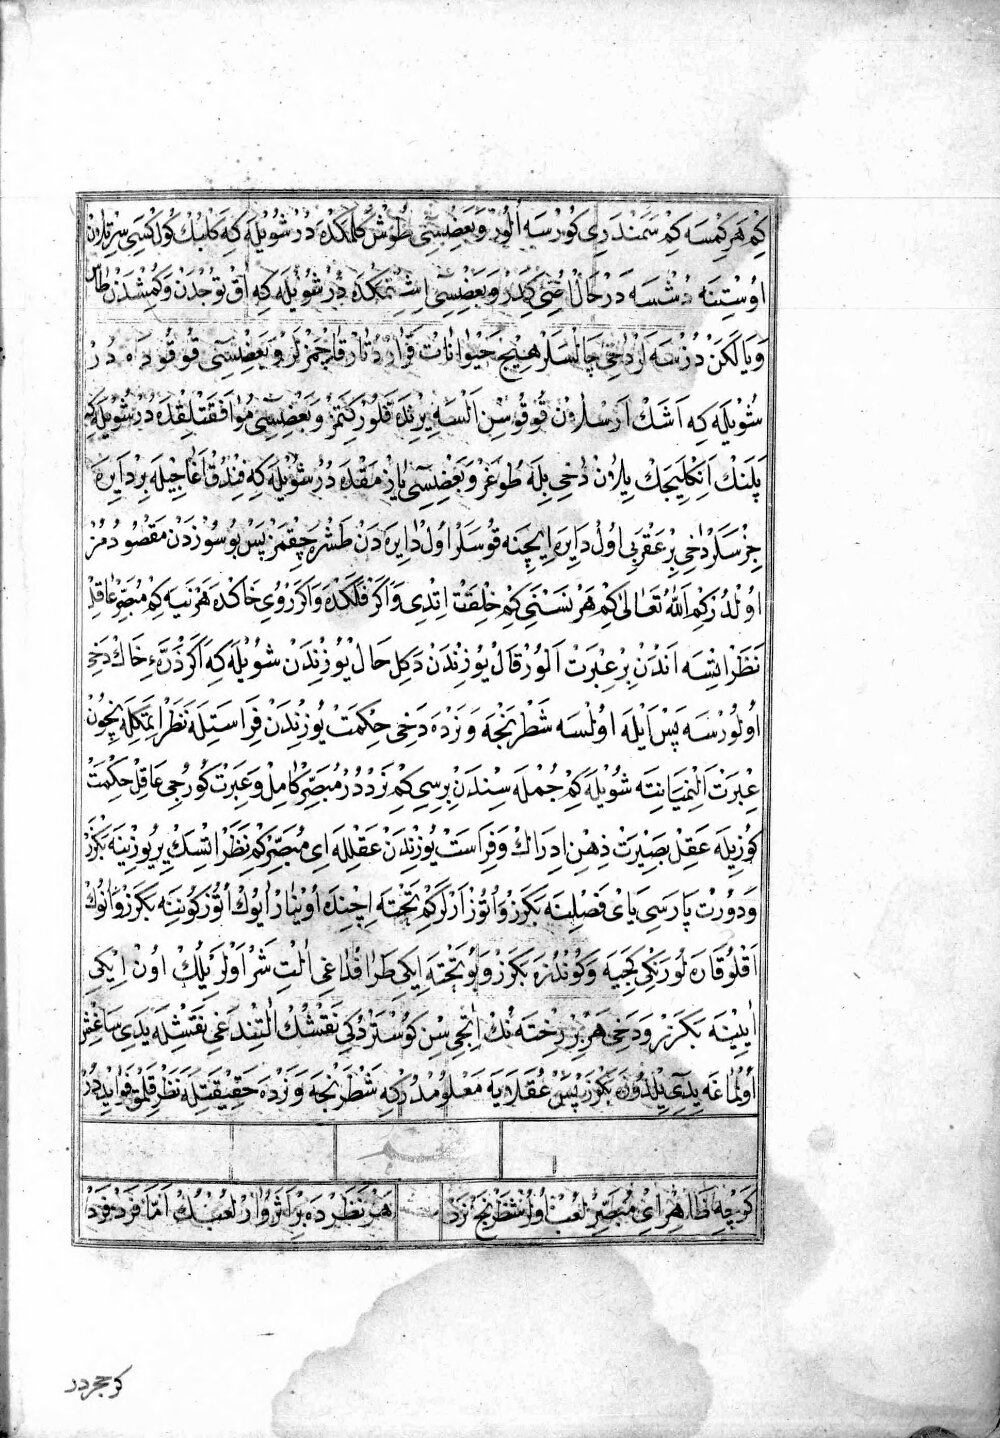 كِمْ هَرْ كِمْسَه كِمْ سَمَنْدَرِى كُورْسَه اُلُورْ وَبَعْضِيسِى طُوشْ كَلْمَكْدَه دُرْ شُويْلَه كِه كَلْبُكْ كُولْكَسِى سِرْتْلَانْ
اُوسْتِنَه دُشْسَه دَرْحَالْ اُصُّى كِدَرْ وَبَعْضِيسِى اِشِتْمَكْدَه دُرْ شُويْلَه كِه آقْ تُوجْدَنْ وَكُمُشْدَنْ طَاسْ
وَيَا لَكَنْ دُزْسَه لَرْ دَاخِى چَالْسَلَرْ هِيچْ حَيْوَانَاتْ قَرَارْ دُتَارْ قَاچْمَزْلَرْ وَبَعْضِيسِى قُوقُودَه دُرْ
شُويْلَه كِه اَشَكْ اَرْسْلَانْ قُوقُوسِنْ اَلْسَه يِرِنْدَه قَلُورْ كِتْمَزْ وَبَعْضِيسِى مُوَافَقَتْلِقْدَه دُرْ شُويْلَه كِه
پَلَنْكْ اَنِكْلَيِجَكْ يِلَانْ دَخِى بِلَه طُوغَرْ وَبَعْضِيسِى يَازْمَقْدَه دُرْ شُويْلَه كِه فِنْدُقْ اَغَاجِيلَه بِرْ دَايِرَه
چِزْسَلَرْ دَاخِى بِرْ عَقْرَبِى اُولْ دَايِرَه اِيچِنَه قُوسَلَرْ اُولْ دَايِرَه دَنْ طَشْرَه چِقْمَزْ پَسْ بُو سُوزْدَنْ مَقْصُودُمُزْ
اُولْدُرْكِمْ اَللّٰهُ تَعَالٰى كِمْ هَرْ نَسْنَىِ كِمْ خِلْقَتْ اِتْدِى وَاكَرْ فَلَكْدَه وَاكَرْ رُوىِ خَاكْدَه هَرْ نَيَه كِمْ مُبَصِّرْ عَاقِلْ
نَظَرْ اِتْسَه اَنْدَنْ بِرْ عِبْرَتْ اَلُورْ قَالْ يُوزِنْدَنْ دَكِلْ حَالْ يُوزِنْدَنْ شُويْلَه كِه اَكَرْ ذَرَّهءِ خَاكْ دَخِى
اُولُورْسَه پَسْ اَيْلَه اُولْسَه شَطْرَنْجَه وَنَرْدَه دَخِى حِكْمَتْ يُوزِنْدَنْ فِرَاسَتِلَه نَظَرْ اِتْمَكِلَه نِچُونْ
عِبْرَتْ اَلِنْمَيَا نِتَه شُويْلَه كِمْ جُمْلَه سِنْدَنْ بِرِيسِى كِمْ نَرْدْدُرْ مُبَصِّرْ كَامِلْ وَعِبْرَتْ كُورُجِى عَاقِلْ حِكْمَتْ
كُوزِيلَه عَقِلْ بَصِيرَتْ ذِهْنِ اِدْرَاكْ وَفِرَاسَتْ يُوزِنْدَنْ عَقْلِلَه اَىْ مُبَصِّرْ كِمْ نَظَرْ اِتْسَكْ يِرْ يُوزِينَه بَكْزَرْ
وَدُورْتْ پَارَسِى يَاىْ فَصْلِينَه بَكْزَرْ وَاُتُوزْ اَرْلَرْ كِمْ تَخْتَه اِچِنْدَه اُوينَارْ اَيُوكْ اُتُوزْ كُونِنَه بَكْزَرْ وَانُوكْ
اَقْلُو قَارَه لُورَنْكِى كِجَيَه وَكُونْدُزَه بَكْزَرْ وَبُو تَخْتَه اِيكِى طَرَافُنْدَاغِى اَلْتِشَرْ اَوْلَرْ يِلُكْ اُونْ اِيكِى
اَيِنَه بَكْزَرْ وَدَخِى هَرْ بِرْ زَخْتَه نُكْ اِيچِى سِنْ كُوسْتَرْدُكِى نَقْشُكْ اَلْتِنْدَغِى نَقْشِلَه يَدِى سَاغِشْ
اُولْمَاغَه يَدِى يِلْدُوزَه بَكْزَرْ پَسْ عُقَلَايَه مَعْلُومْدُرْ كِه شَطْرَنْجَه وَنَرْدَه حَقِيقَتِلَه نَظَرْ قِلْمَقْ فَوَايِدْدُرْ
كَرْچِه ظَاهِرْ اَىْ مُبَصِّرْ لَعْبْ اُولُنْ شَطْرَنْجْ نَرْدْ هَرْ نَظَرْدَه بِرْ اَثَرْ وَارْ لُعْبُكْ اَمَّا فَرْدْ فَرْدْ